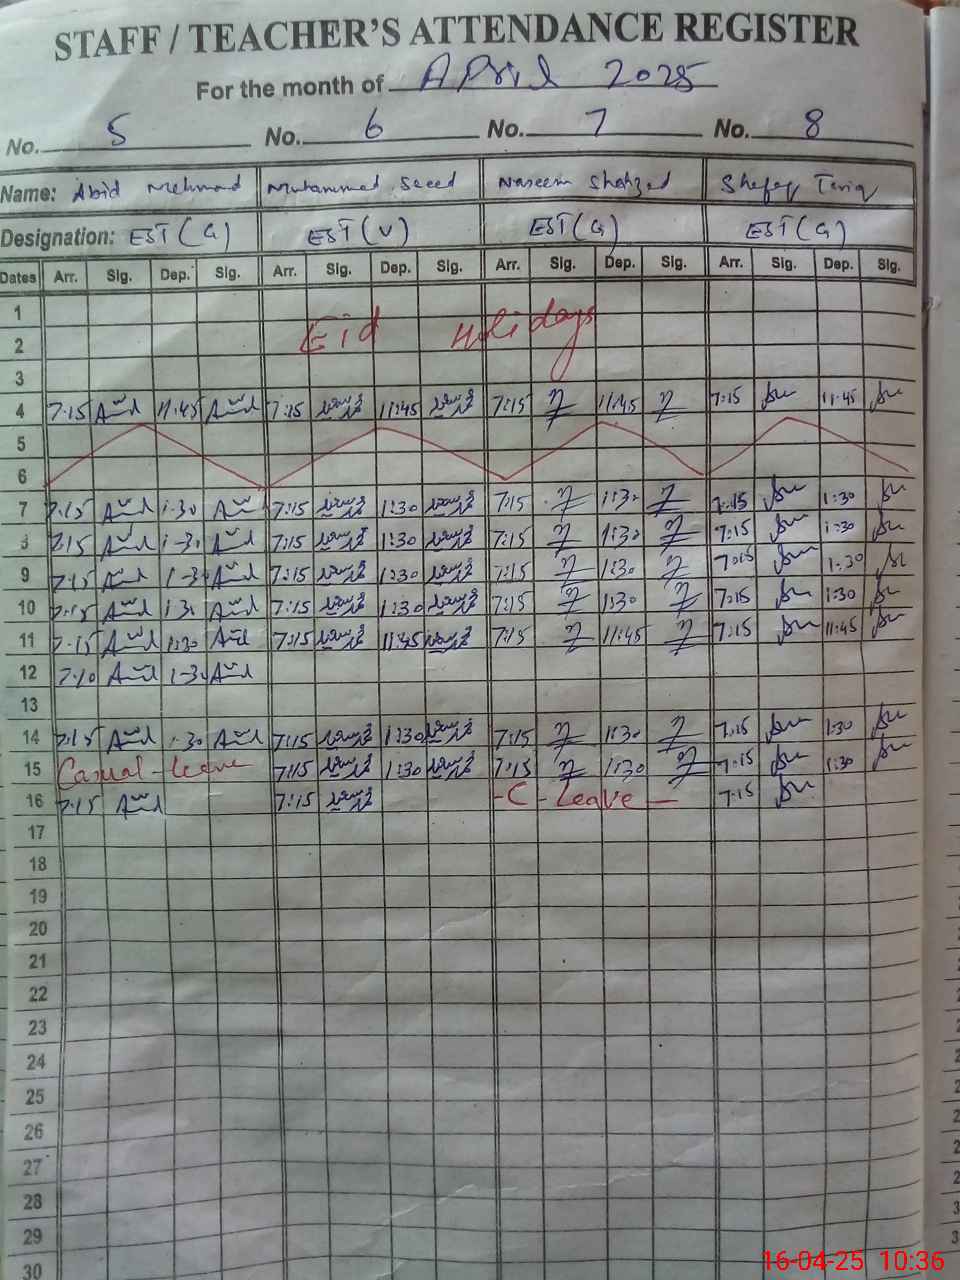 STAFF / TEACHER'S ATTENDANCE REGISTER
For the month of April 2025
No. 5 No. 6 No. 7 No. 8
Name: Abid Mehmood Muhammad Saeed Naseem Shahzad Tariq
Designation: EST (G) EST (U) EST (G) EST (G)
Dates Arr. Sig. Dep. Sig. Arr. Sig. Dep. Sig. Arr. Sig. Dep. Sig. Arr. Sig. Dep. Sig.
1
2 Eid Holidays
3
4 7:15 11:45 7:15 11:45 7:15 11:45 7:15 11:45
5
6
7 7:15 1:30 7:15 1:30 7:15 1:30 7:15 1:30
8 7:15 1-30 7:15 1:30 7:15 1:30 7:15 1:30
9 7:15 1-30 7:15 1:30 7:15 1:30 7:15 1:30
10 7:15 1:30 7:15 1:30 7:15 1:30 7:15 1:30
11 7:15 1:30 7:15 11:45 7:15 11:45 7:15 11:45
12 7:10 1-30
13
14 7:15 1-30 7:15 1:30 7:15 1:30 7:15 1:30
15 Casual - leave 7:15 1:30 7:15 1:30 7:15 1:30
16 7:15 7:15 - C - Leave - 7:15
17
18
19
20
21
22
23
24
25
26
27
28
29
30
16-04-25 10:36